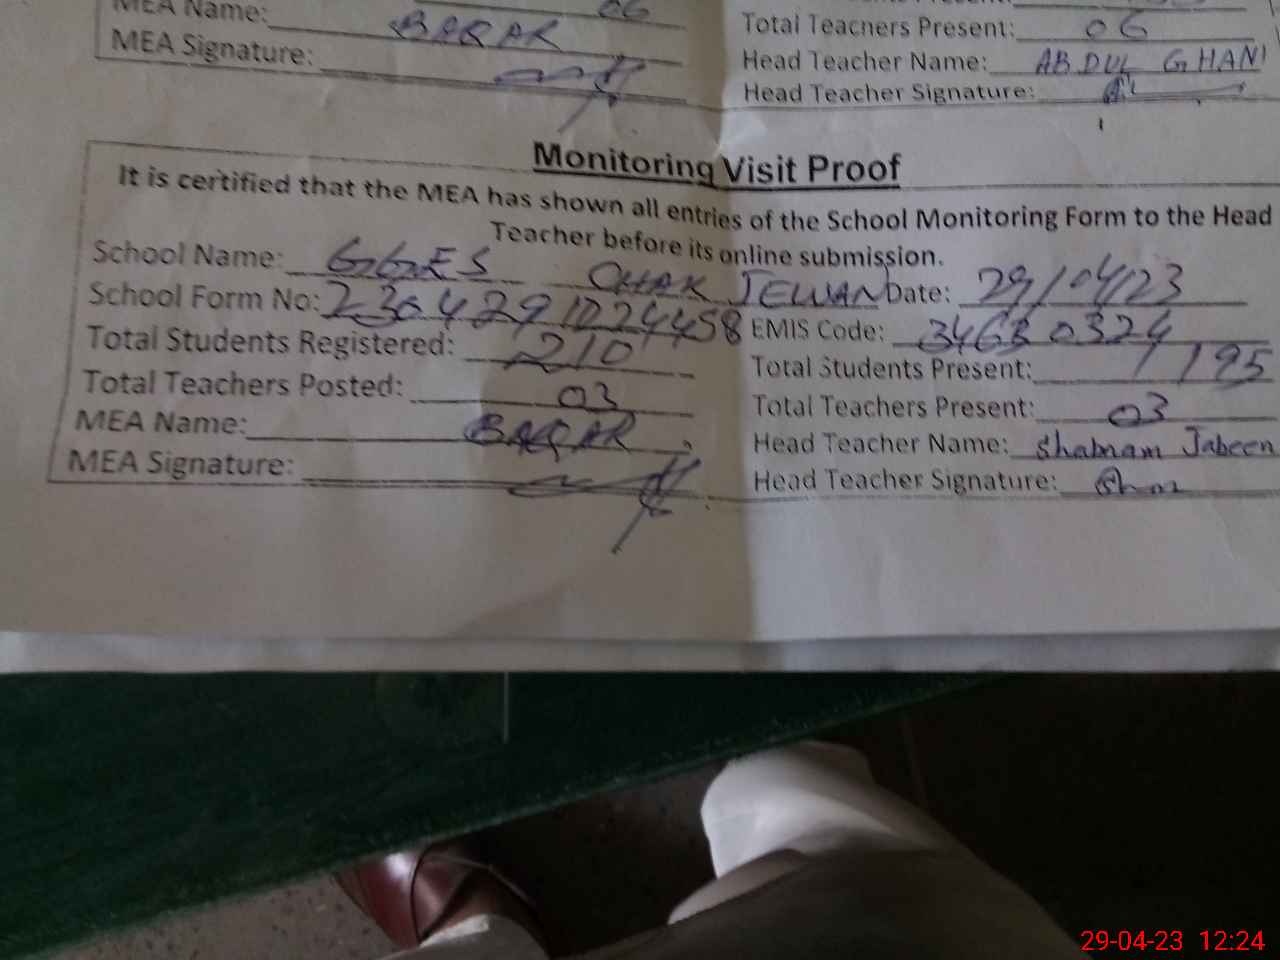 MEA Name: BAQAR
06
Total Teachers Present: 06
MEA Signature:
Head Teacher Name: ABDUL GHANI
Head Teacher Signature:
Monitoring Visit Proof
It is certified that the MEA has shown all entries of the School Monitoring Form to the Head
Teacher before its online submission.
School Name: GGES CHAK JEWAN Date: 29/04/23
School Form No: 2304291024458 EMIS Code: 34630324
Total Students Registered: 210 Total Students Present: 195
Total Teachers Posted: 03 Total Teachers Present: 03
MEA Name: BAQAR Head Teacher Name: Shabnam Jabeen
MEA Signature: Head Teacher Signature:
29-04-23 12:24